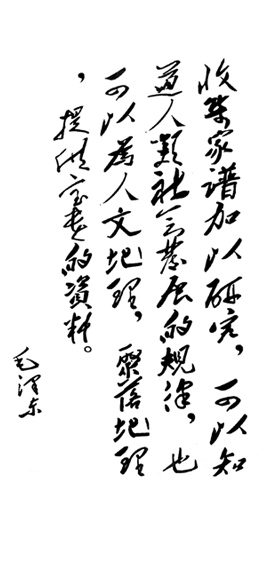 收集家谱加以研究，可以知
道人類社会發展的規律，也
可以為人文地理，聚落地理
，提供宝贵的資料。
毛泽东